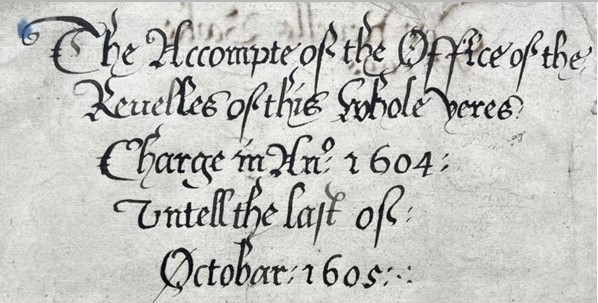 The Accompte of the Office of the
Reuelles of this whole yeres
Charge in Ano: 1604:
Untell the last of:
Octobar: 1605:·: